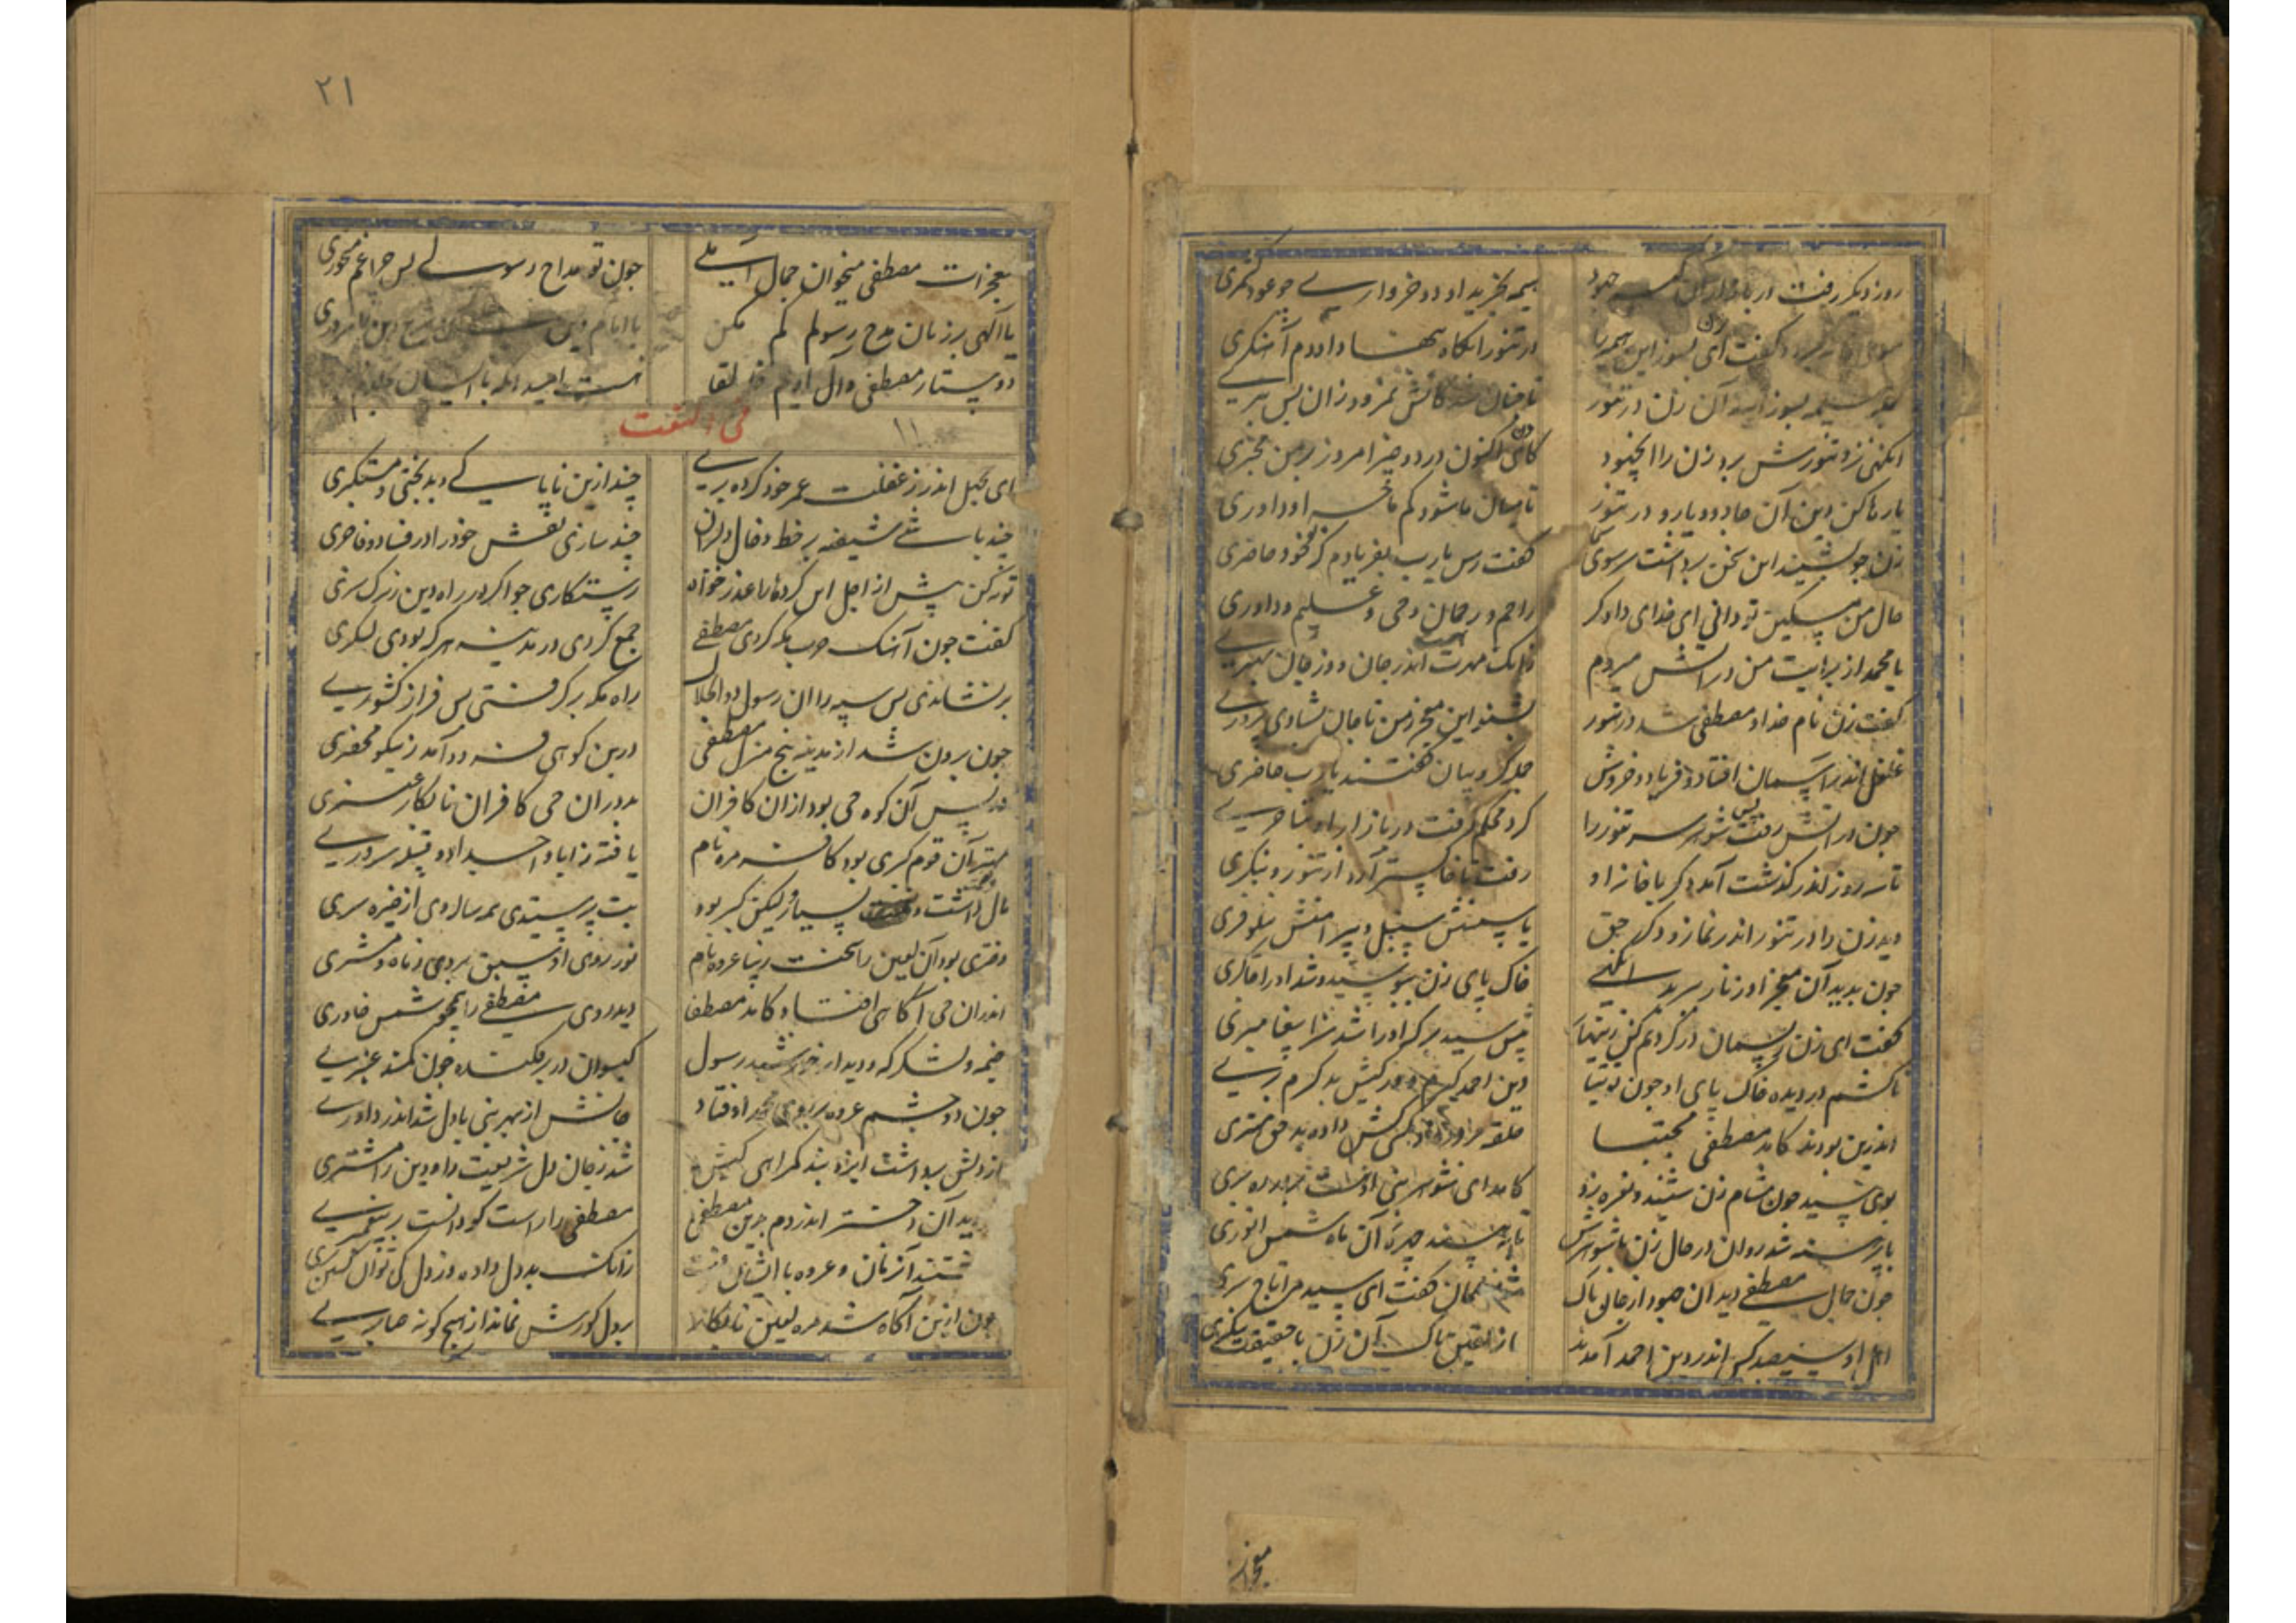 روز دیکر رفت در بازار آن کبر جهود
هیمه بخرید او دو خرواری چو عود کمری
کفت ای بسوز این هیمه را
در تنور انکاه بنهاد اندرو آتشکری
آن زن در تنور
تا چنان شد کاتش نمرود زان پس
انکهی نزد تنورش برد زن را انجهود
کای اکنون در دو خیز امروز بر من مخبری
یا رها کن دین آن جادو و یا رو در تنور
تا میان ما شود کم ماجرا و داوری
زن چو بشنید این سخن برداشت سر سوی سما
کفت رس یا رب بفریادم که خود حاضری
حال من مسکین تو دانی ای خدای دادکر
راحم و رحمان و حی و علیم و داوری
یا محمد از برایت من در آتش میروم
زانک مهرت اندر جان و از جان بهتری
کفت زن نام خدا و مصطفی شد در تنور
بشنو این معجز ز من تا جان بشادی پروری
غلغل اندر آسمان افتاد و فریاد و خروش
جمله کروبیان کفتند یا رب حاضری
چون در آتش رفت پس شوهر سر تنور را
کرد محکم رفت در بازار او تا جری
تا سه روز اندر کذشت آمد دکر با خانه او
رفت تا خاکستر آرد از تنور و بنکری
دید زن را در تنور اندر نماز و ذکر حق
یاسمنش سنبل و پیرامنش نیلوفری
چون بدید آن معجز او زنار ببرید انکهی
خاک پای زن ببوسید و شد او را چاکری
کفت ای زن ریسمان در کردنم کن زینهار
پیش سید بر که او را شد سزا پیغامبری
تا کشم در دیده خاک پای او چون توتیا
دین احمد کیرم و در کیش بد کردم بری
اندرین بودند کامد مصطفی مجتبا
حلقه بر در زد کسی کش داده بد حق مهتری
بوی سید چون مشام زن شنید و نعره زد
کامد ای شوهر نبی
پا برهنه شد روان در حال زن با شوهرش
تا ببینند چهره آن ماه شمس انوری
چون جمال مصطفی دید آن جهود از جان پاک
شد مسلمان کفت ای سید مرا تاج سری
اهل او سیصد کس اندر دین احمد آمدند
از یقین پاک آن زن با حقیقت بنکری
معجزات
٢١
معجزات مصطفی میخوان جمال آملی
چون تو مداح رسولی پس چرا غم میخوری
یا الهی بر زبان مدح رسولم کم مکن
با امام دین
دوستار مصطفی و آل اویم
نیست امید
١١
فی النعت
ای بجهل اندر ز غفلت عمر خود کرده بری
چند ازین ناپاکی و بدبختی و مستکبری
چند باشی شیفته بر خط و خال دلبران
چند سازی نفس خود را در فساد و فاجری
توبه کن پیش از اجل این کردها را عذر خواه
رستکاری جو اکر در راه دین زیرک سری
کفت چون آهنک حرب مکه کردی مصطفی
جمع کردی در مدینه هر که بودی لشکری
برنشاندی پس سپه را آن رسول ذوالجلال
راه مکه بر کرفتی پس فراز کشوری
چون برون شد از مدینه پنج منزل مصطفی
در بن کوهی فرود آمد ز نیکو محضری
در پس آن کوه حی بود از آن کافران
بد در آن حی کافران نابکار عنتری
مهتر آن قوم کبری بود کافر مره نام
یافته ز ابا و اجداد او قبیله سروری
مال و نعمت داشت بسیار و لیکن کبر بود
بت پرستیدی همه سال وی از خیره سری
دختری بود آن لعین را سخت زیبا عروه نام
نور روی او سبق بردی ز ماه و مشتری
اندر آن حی آکاهی افتاد کامد مصطفا
دید روی مصطفی را همچو شمس خاوری
خیمه و لشکر که و دیدار خورشید رسول
کیسوان در بر فکنده چون کمند عنبری
چون دو چشم عروه بر روی محمد اوفتاد
جانش از مهر نبی با دل شد اندر داوری
از دلش برداشت ایزد بند کمراهی کیش
شد ز جان و دل شریعت را و دین را مشتری
دید آن دختر اندر دم جبین مصطفی
مصطفی را راست کو دانست بر پیغمبری
شدند آن زمان و عروه با ایشان برفت
زانک بد دل داده وز دل کی توان کشتن بری
چون ازین آکاه شد مره لعین نابکار
بر دل کورش نماند از هیچ کونه صابری